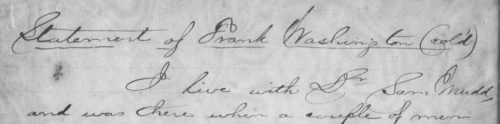 Statement of Frank Washington (cold)
I live with Dr Sam Mudd,
and was there when a couple of men